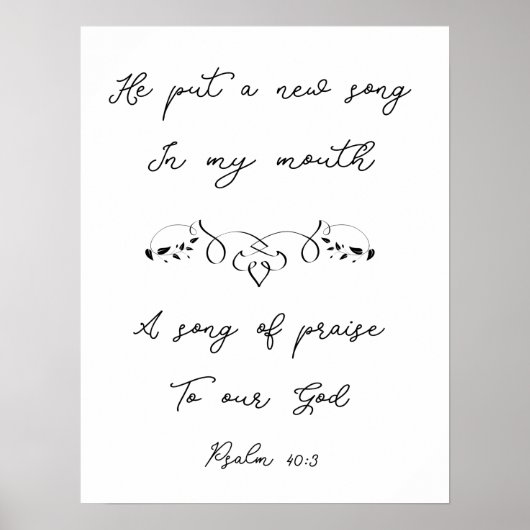 He put a new song
In my mouth
A song of praise
To our God
Psalm 40:3